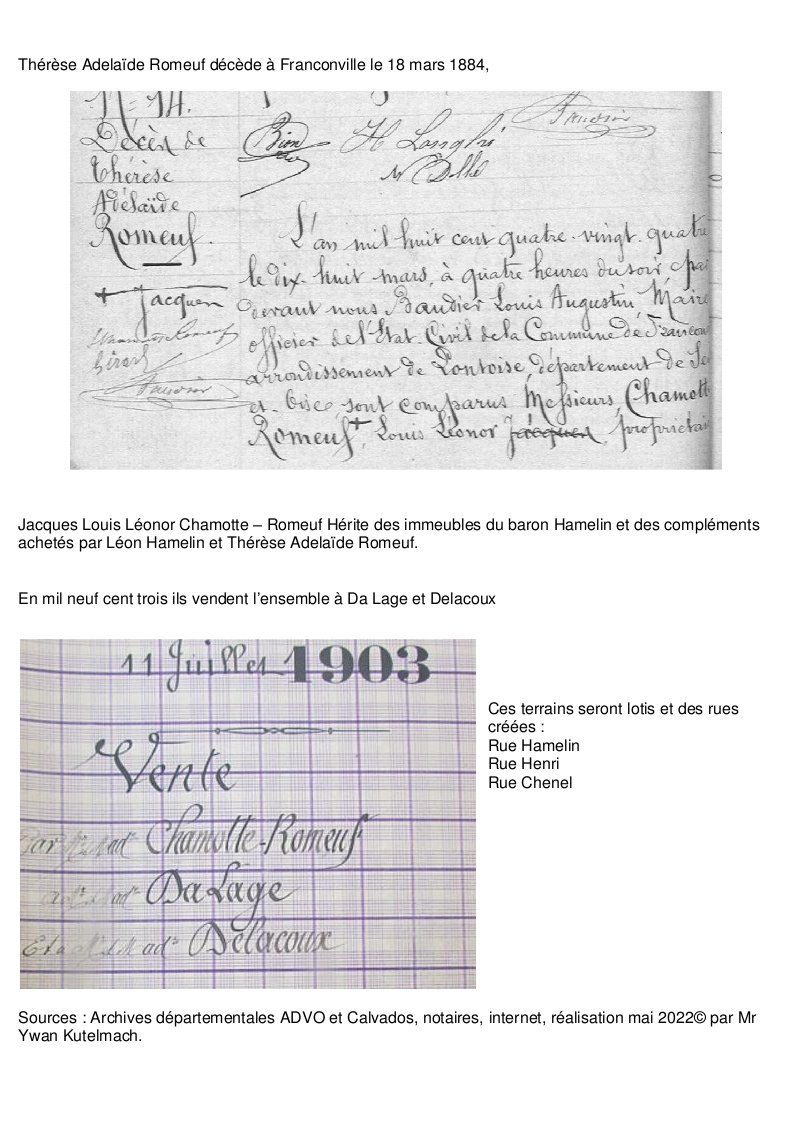 Thérèse Adelaïde Romeuf décède à Franconville le 18 mars 1884,
N= 14.
Décès de
Thérèse
Adélaïde
Romeuf.
+ Jacques
Girard
Baudier
Bion
H Langlois
Baudier
L'an mil huit cent quatre-vingt-quatre
le dix-huit mars, à quatre heures du soir, par
devant nous Baudier Louis Augustin, Maire
officier de l'Etat-Civil de la Commune de Francon
arrondissement de Pontoise, département de Se
et-Oise, sont comparus Messieurs, Chamott
Romeuf+, Louis Léonor Jacques, propriétai
Jacques Louis Léonor Chamotte – Romeuf Hérite des immeubles du baron Hamelin et des compléments
achetés par Léon Hamelin et Thérèse Adelaïde Romeuf.
En mil neuf cent trois ils vendent l'ensemble à Da Lage et Delacoux
11 Juillet 1903
Vente
Par Mr & Made Chamotte-Romeuf
Made Da Lage
Et à Mr & Made Delacoux
Ces terrains seront lotis et des rues
créées :
Rue Hamelin
Rue Henri
Rue Chenel
Sources : Archives départementales ADVO et Calvados, notaires, internet, réalisation mai 2022© par Mr
Ywan Kutelmach.